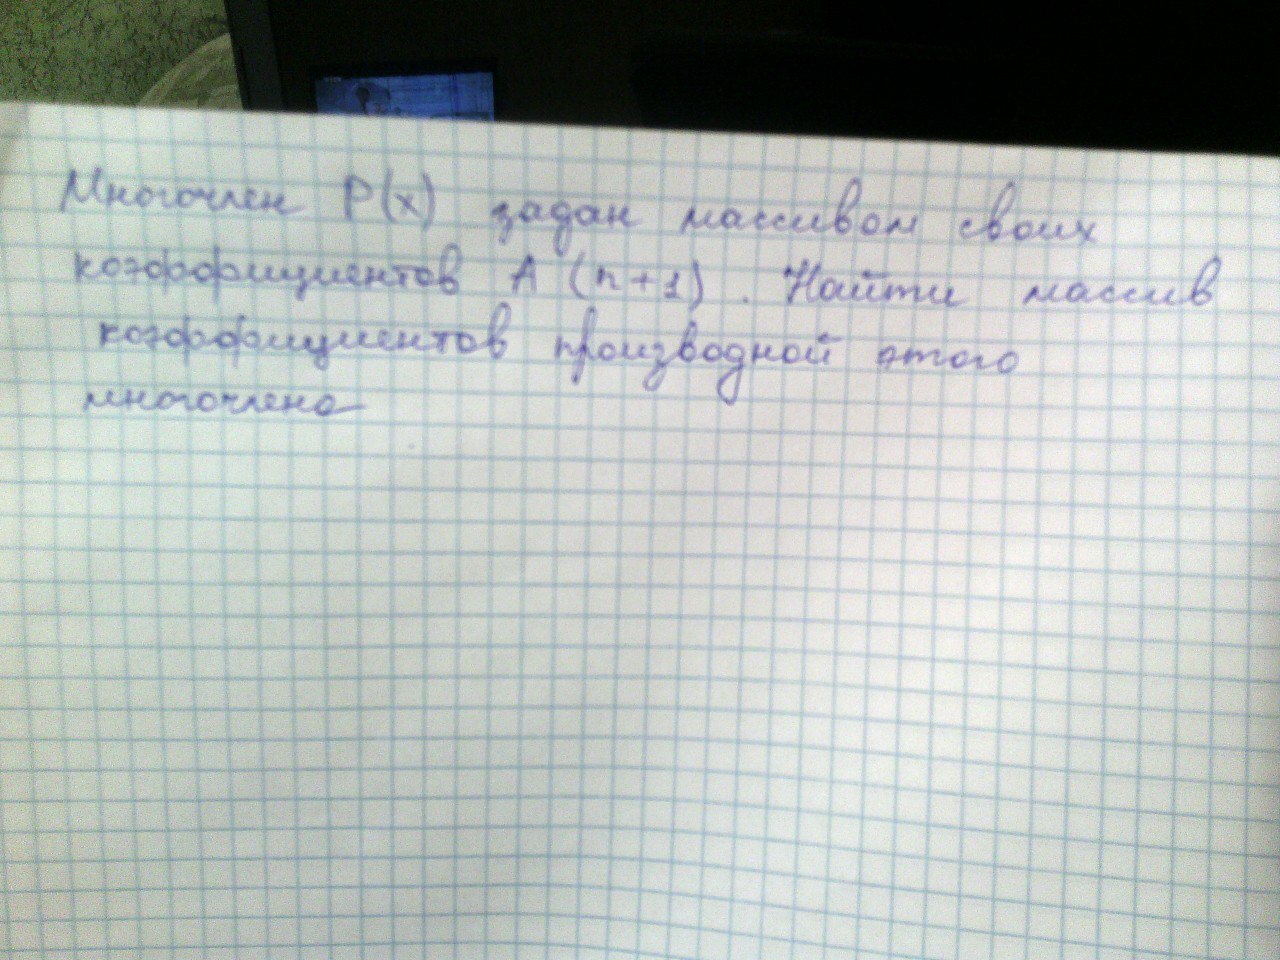 Многочлен P(x) задан массивом своих
коэффициентов A (n+1). Найти массив
коэффициентов производной этого
многочлена